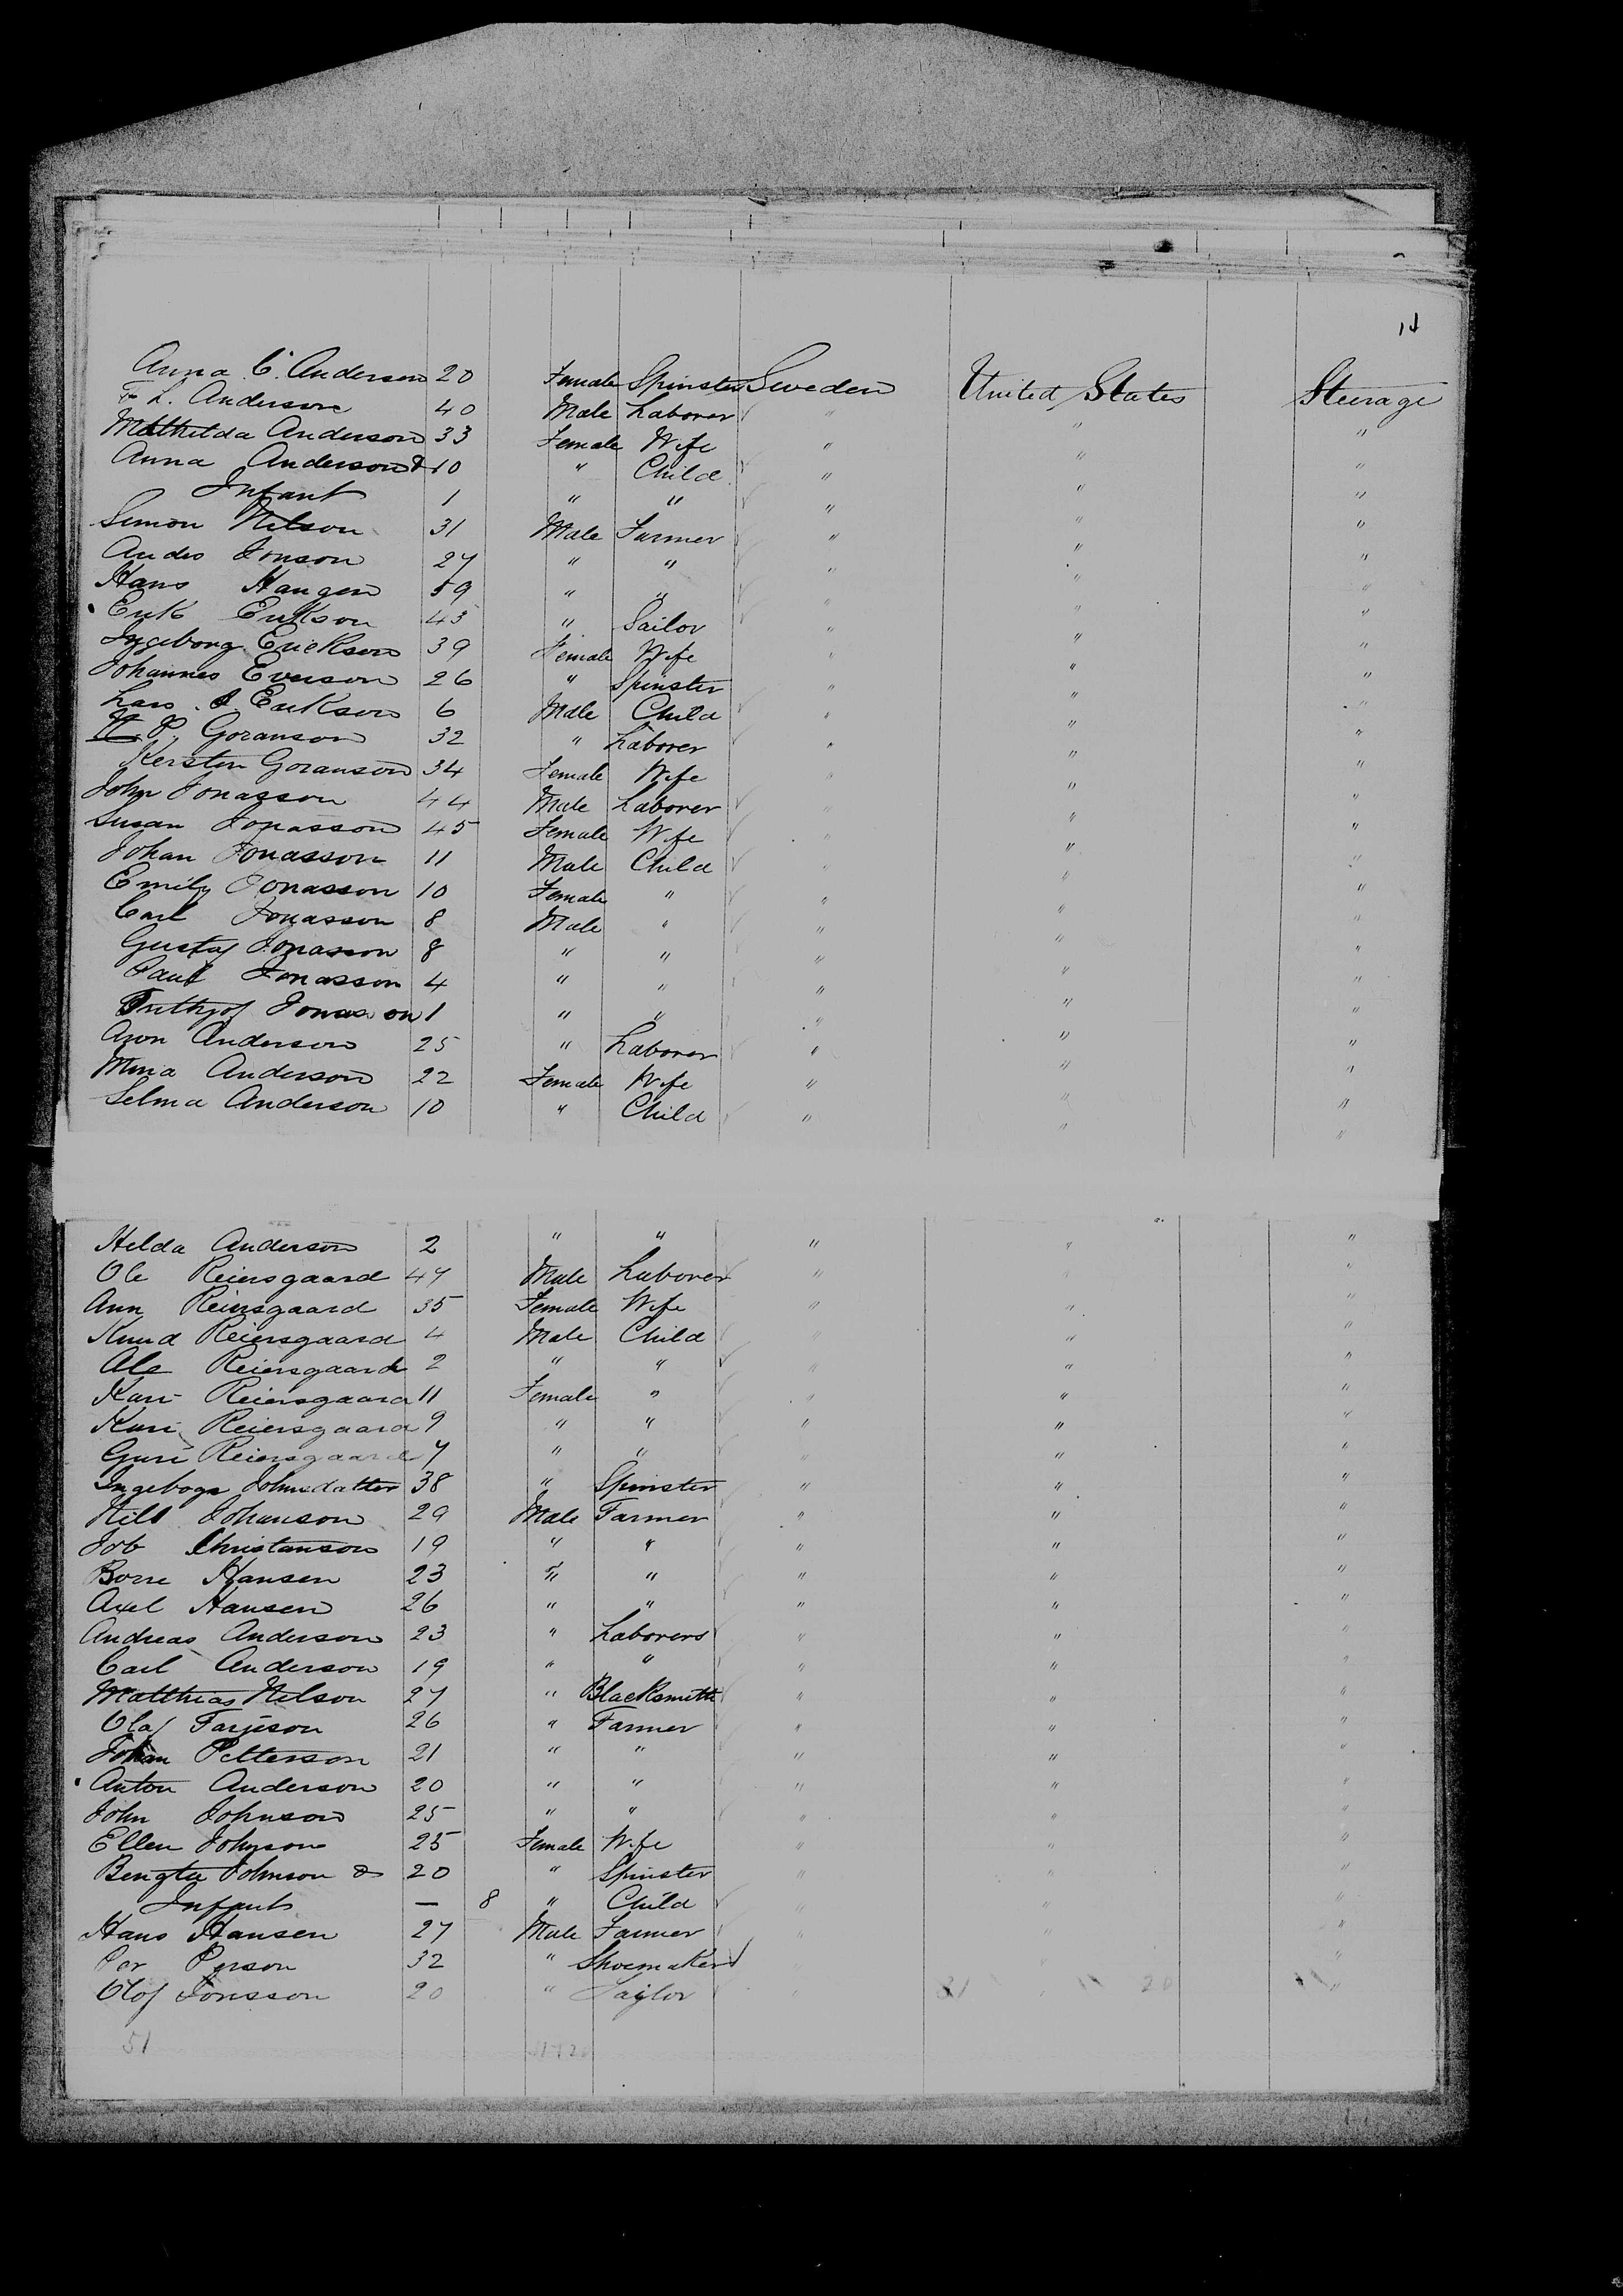 11
Anna C. Anderson 20 Female Spinster Sweden United States Steerage
F L. Anderson 40 Male Laborer " " "
Mathilda Anderson 33 Female Wife " " "
Anna Anderson & 10 " Child " " "
Infant 1 " " " " "
Simon Nelson 31 Male Farmer " " "
Andes Jonson 27 " " " " "
Hans Haugen 59 " " " " "
Erik Erikson 43 " Sailor " " "
Ingeborg Erickson 39 Female Wife " " "
Johannes Everson 26 " Spinster " " "
Lars Erikson 6 Male Child " " "
P. Goranson 32 " Laborer " " "
Kersten Goranson 34 Female Wife " " "
John Jonasson 44 Male Laborer " " "
Susan Jonasson 45 Female Wife " " "
Johan Jonasson 11 Male Child " " "
Emily Jonasson 10 Female " " " "
Carl Jonasson 8 Male " " " "
Gustaf Jonasson 8 " " " " "
Paul Jonasson 4 " " " " "
Frithjof Jonasson 1 " " " " "
Aron Anderson 25 " Laborer " " "
Mina Anderson 22 Female Wife " " "
Selma Anderson 10 " Child " " "
Helda Anderson 2 " " " " "
Ole Reiersgaard 47 Male Laborer " " "
Ann Reiersgaard 35 Female Wife " " "
Knud Reiersgaard 4 Male Child " " "
Ole Reiersgaard 2 " " " " "
Kari Reiersgaard 11 Female " " " "
Kari Reiersgaard 9 " " " " "
Guri Reiersgaard 7 " " " " "
Ingebogr Johnsdatter 38 " Spinster " " "
Nils Johanson 29 Male Farmer " " "
Job Christanson 19 " " " " "
Borre Hansen 23 " " " " "
Axel Hansen 26 " " " " "
Andreas Anderson 23 " Laborers " " "
Carl Anderson 19 " " " " "
Matthias Nelson 27 " Blacksmith " " "
Olaf Farjeson 26 " Farmer " " "
Johan Petterson 21 " " " " "
Anton Anderson 20 " " " " "
John Johnson 25 " " " " "
Ellen Johnson 25 Female Wife " " "
Bengta Johnson & 20 " Spinster " " "
Infant — 8 " Child " " "
Hans Hansen 27 Male Farmer " " "
Per Person 32 " Shoemaker " " "
Olof Jonsson 20 " Taylor " " "
51